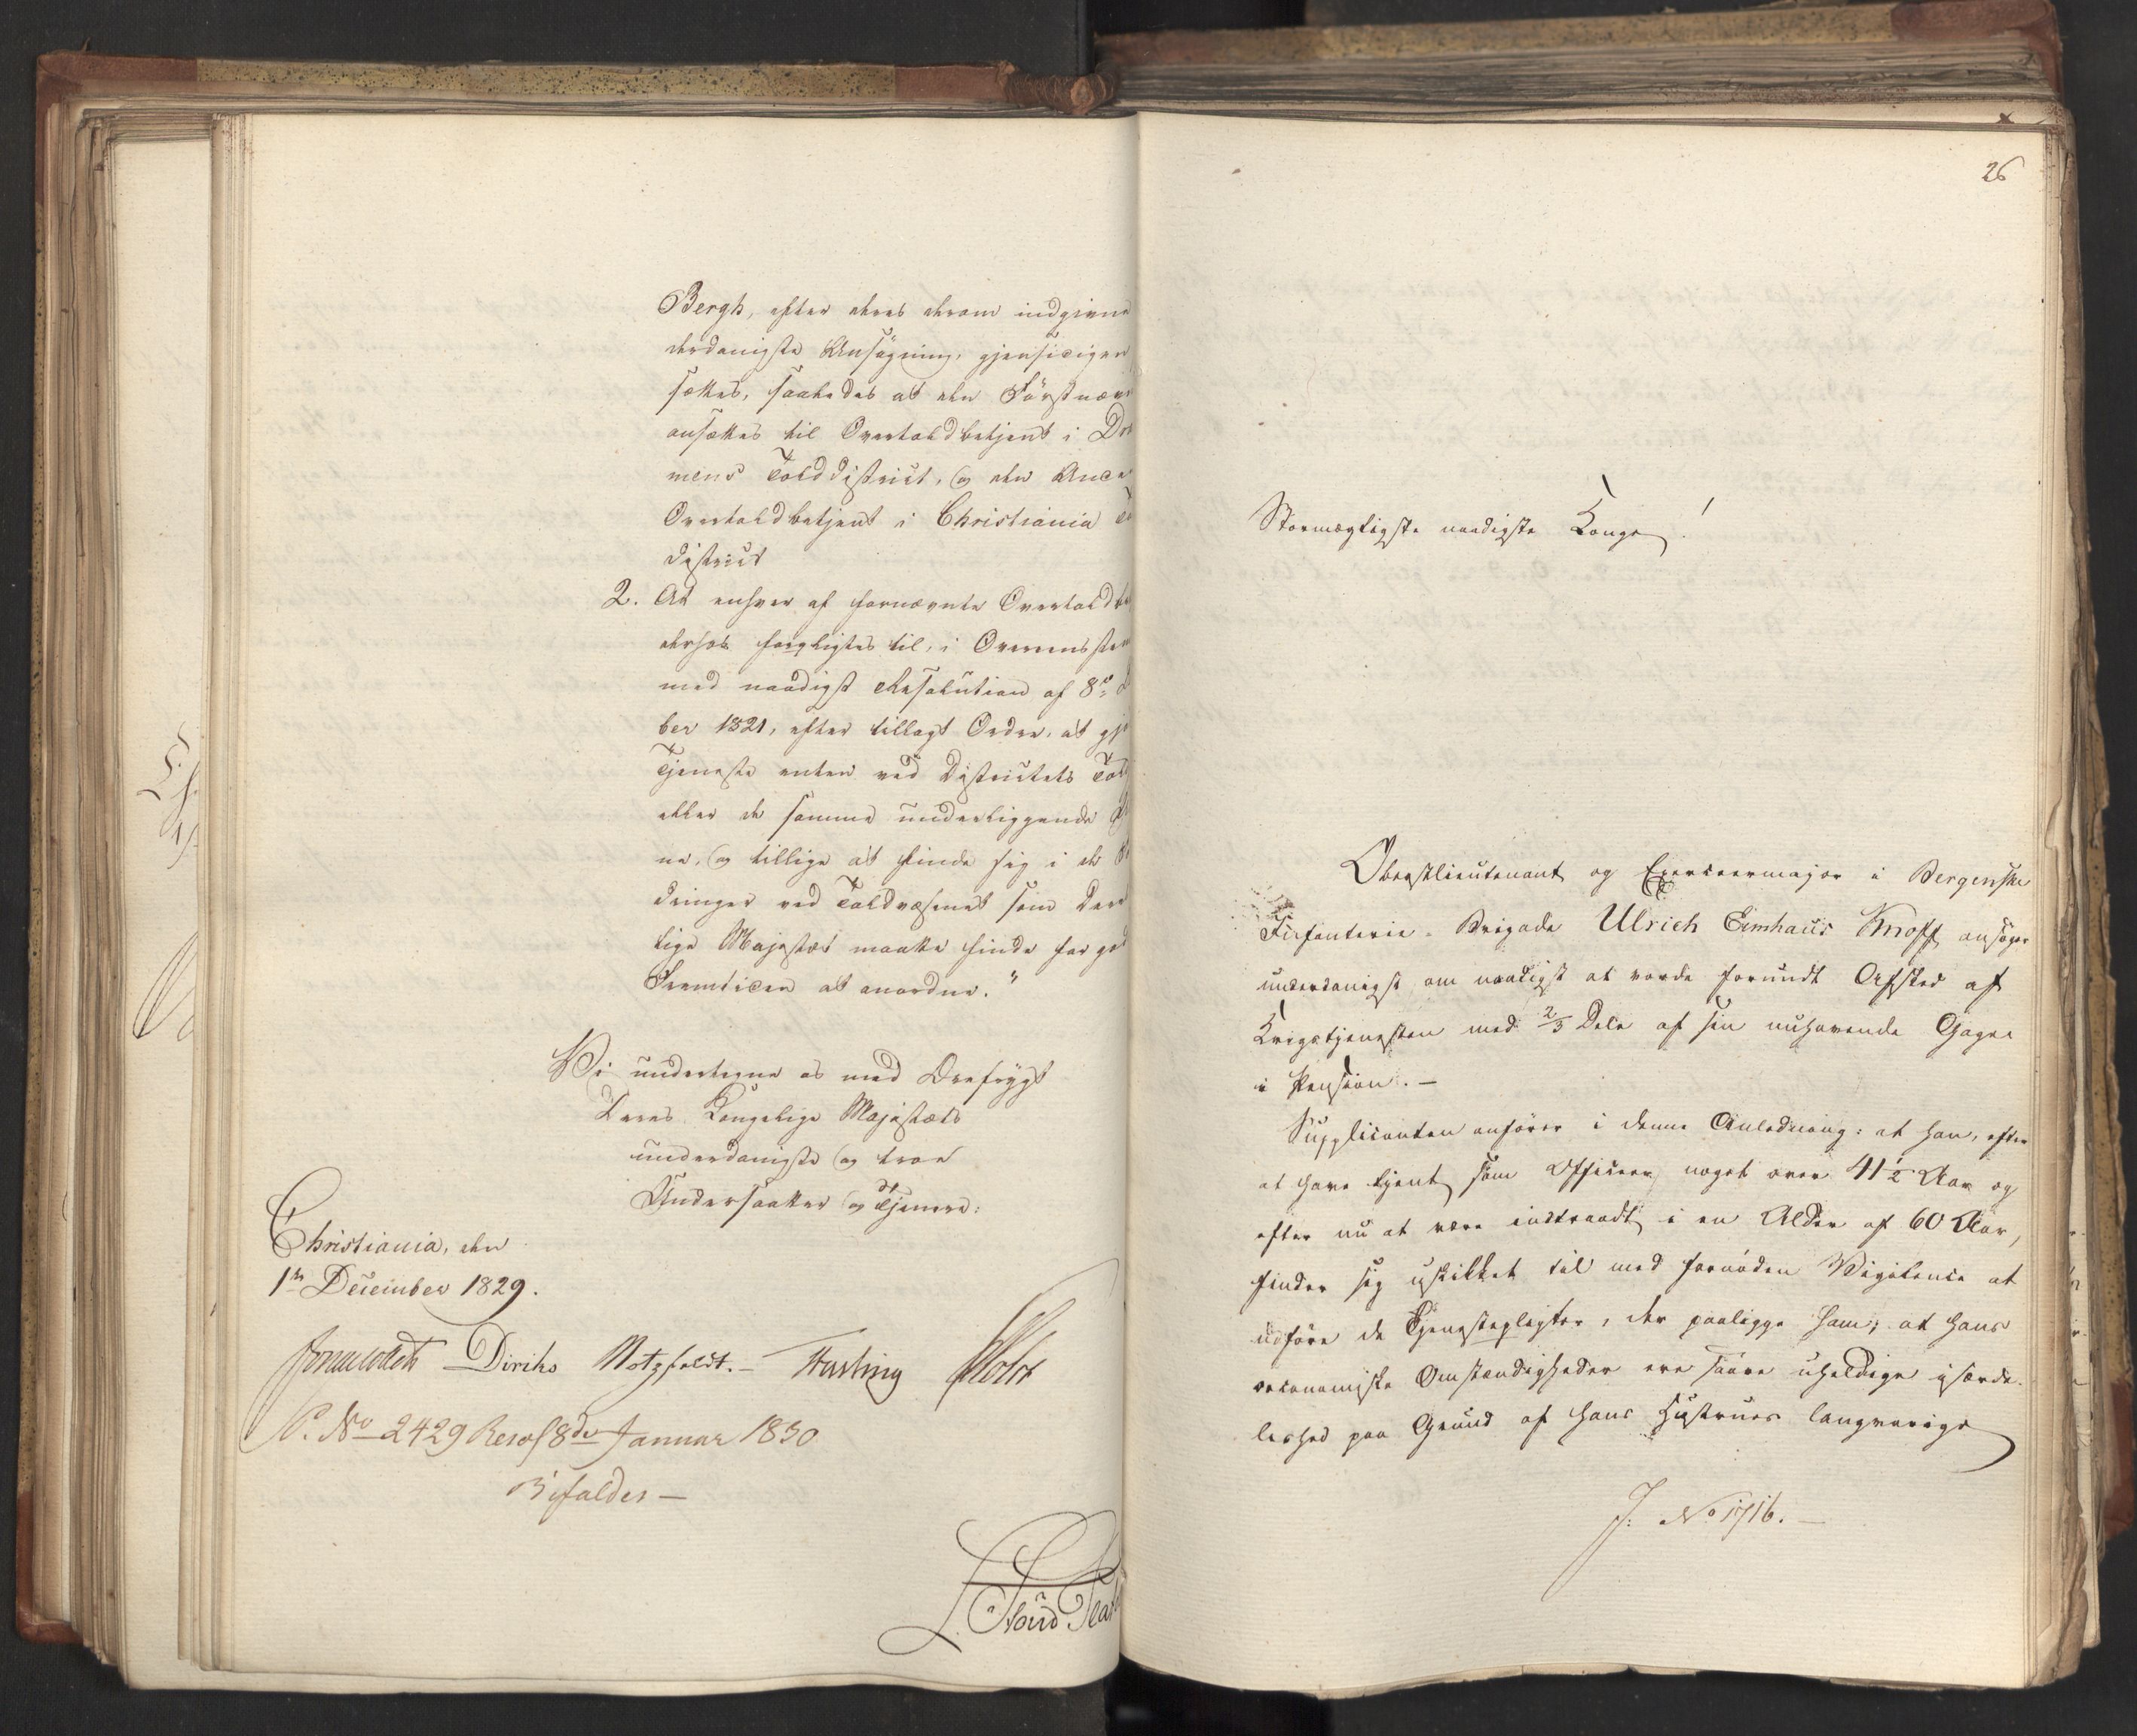 Bergh, efter deres derom indgivne
derdanigste Ansögning, gjensidigen
sættes, saaledes at den Förstnævn
ansættes til Overtoldbetjent i Dra
mens Tolddistrict, og den Anden
Overtoldbetjent i Christiania To
district
2. At enhver af fornævnte Overtoldbe
derhos forpligtes til, i Overensstem
med naadigst Resolution af 8de
ber 1821, efter tillagt Ordre, at gjö
Tjeneste enten ved Districtets Told
eller de samme underliggende
ne, og tillige at finde sig i de
dringer ved Toldvæsenet som Deres
lige Majestæt maatte finde for godt
Fremtiden at anordne."
Vi undertegne os med Ærefrygt
Deres Kongelige Majestæts
underdanigste og troe
Undersaatter og Tjenere:
Christiania, den
1ste December 1829.
Jonas Collett Diriks Motzfeldt. Fasting Holst
P. No 2429 Resol 8de Januar 1830
Bifaldes —
26
Stormægtigste naadigste Konge!
Oberstlieutenant og Exerceermajor i Bergenske
Infanterie-Brigade Ulrich Eimhaus Knoff ansöger
underdanigst om naadigst at vorde forundt Afsked af
Krigstjenesten med 2/3 Dele af sin nuhavende Gage
i Pension. —
Supplicanten anförer i denne Anledning: at han, efter
at have tjent som Officeer noget over 41½ Aar og
efter nu at være indtraadt i en Alder af 60 Aar,
finder sig uskikket til med fornöden Vigilence at
udföre de Tjenestepligter, der paaligge ham; at hans
oeconomiske Omstændigheder ere saare uheldige isærde-
leshed paa Grund af hans Hustrues langvarige
J: No 1716. —